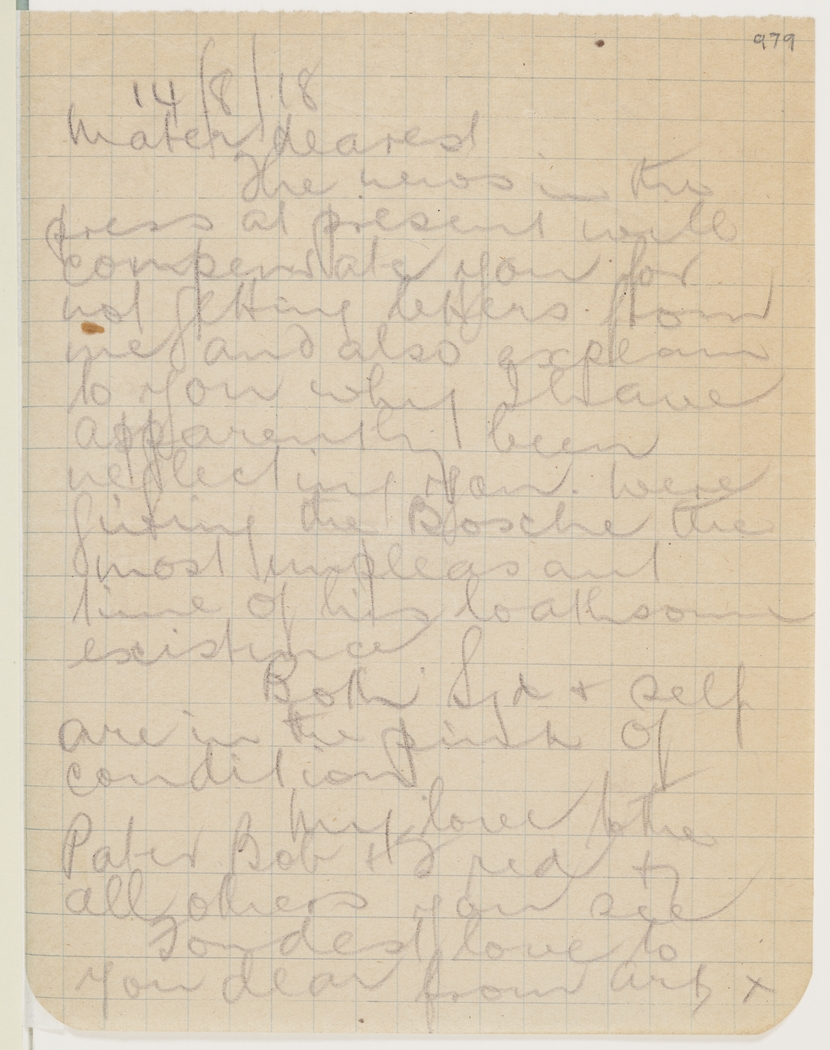 979
14/8/18
Mater dearest
The news in the
press at present will
compensate you for
not getting letters from
me and also explain
to you why I have
apparently been
neglecting you. Were
giving the Bosche the
most unpleasant
time of his loathsome
existence
Both Syd + self
are in the pink of
condition
My love to the
Pater Bob +
all others you see
Fondest love to
you dear from Art x